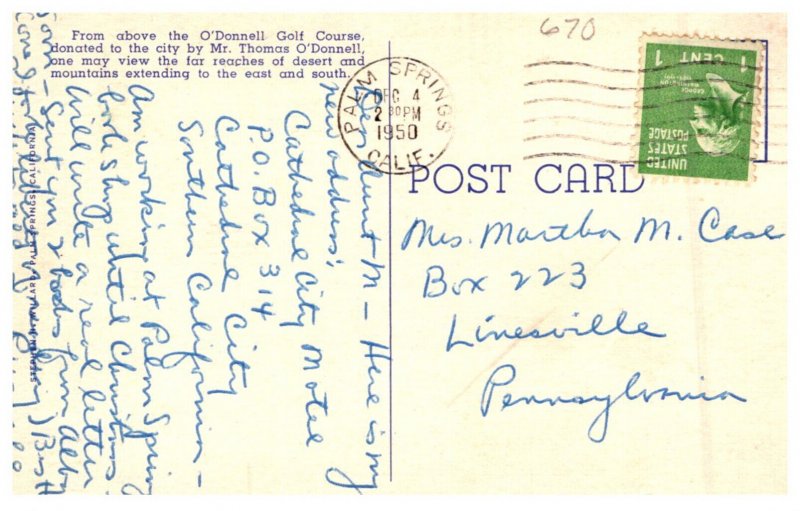 670
From above the O'Donnell Golf Course,
donated to the city by Mr. Thomas O'Donnell,
one may view the far reaches of desert and
mountains extending to the east and south.
PALM SPRINGS
DEC 4
2 30 PM
1950
CALIF.
1 CENT 1
GEORGE
WASHINGTON
UNITED
STATES
POSTAGE
POST CARD
Mrs. Martha M. Case
Box 223
Linesville
Pennsylvania
Dear Aunt M - Here is my
new address;
Cathedral City Motel
P.O. Box 314
Cathedral City
Southern California -
Am working at Palm Springs
book shop until Christmas.
Will write a real letter
soon - Sent you 2 books from
STEPHEN H. WILLARD, PALM SPRINGS, CALIFORNIA